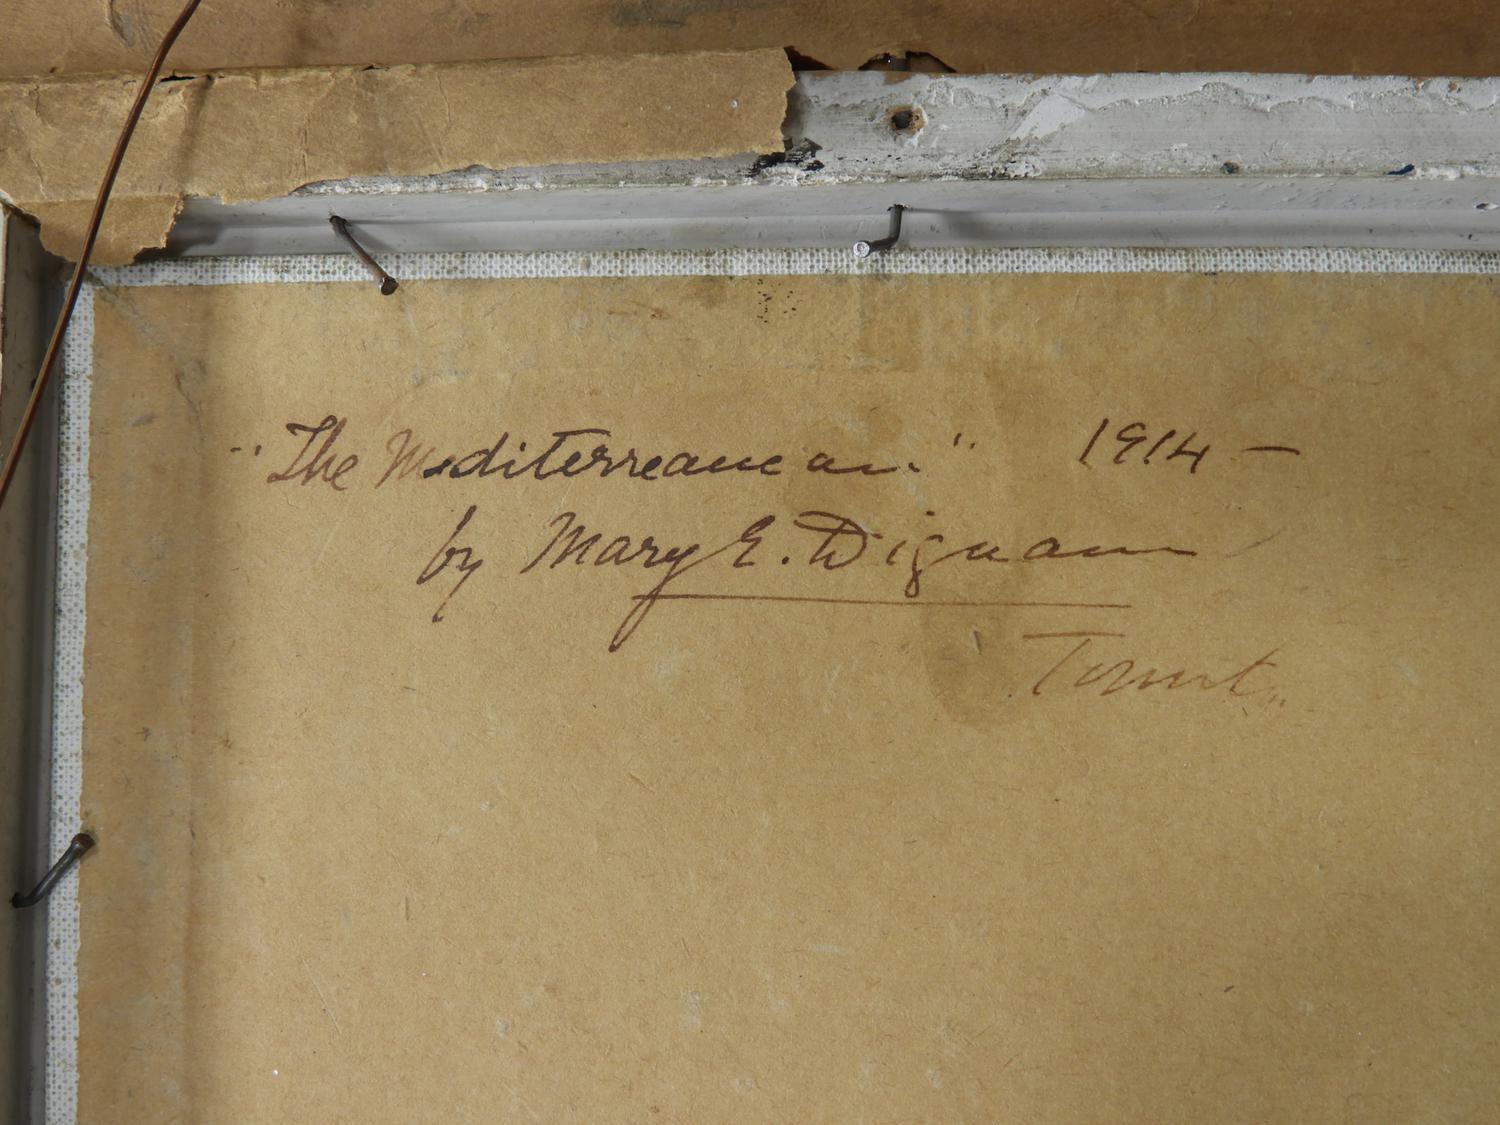 "The Mediterranean." 1914 —
by Mary E. Dignam
Toronto